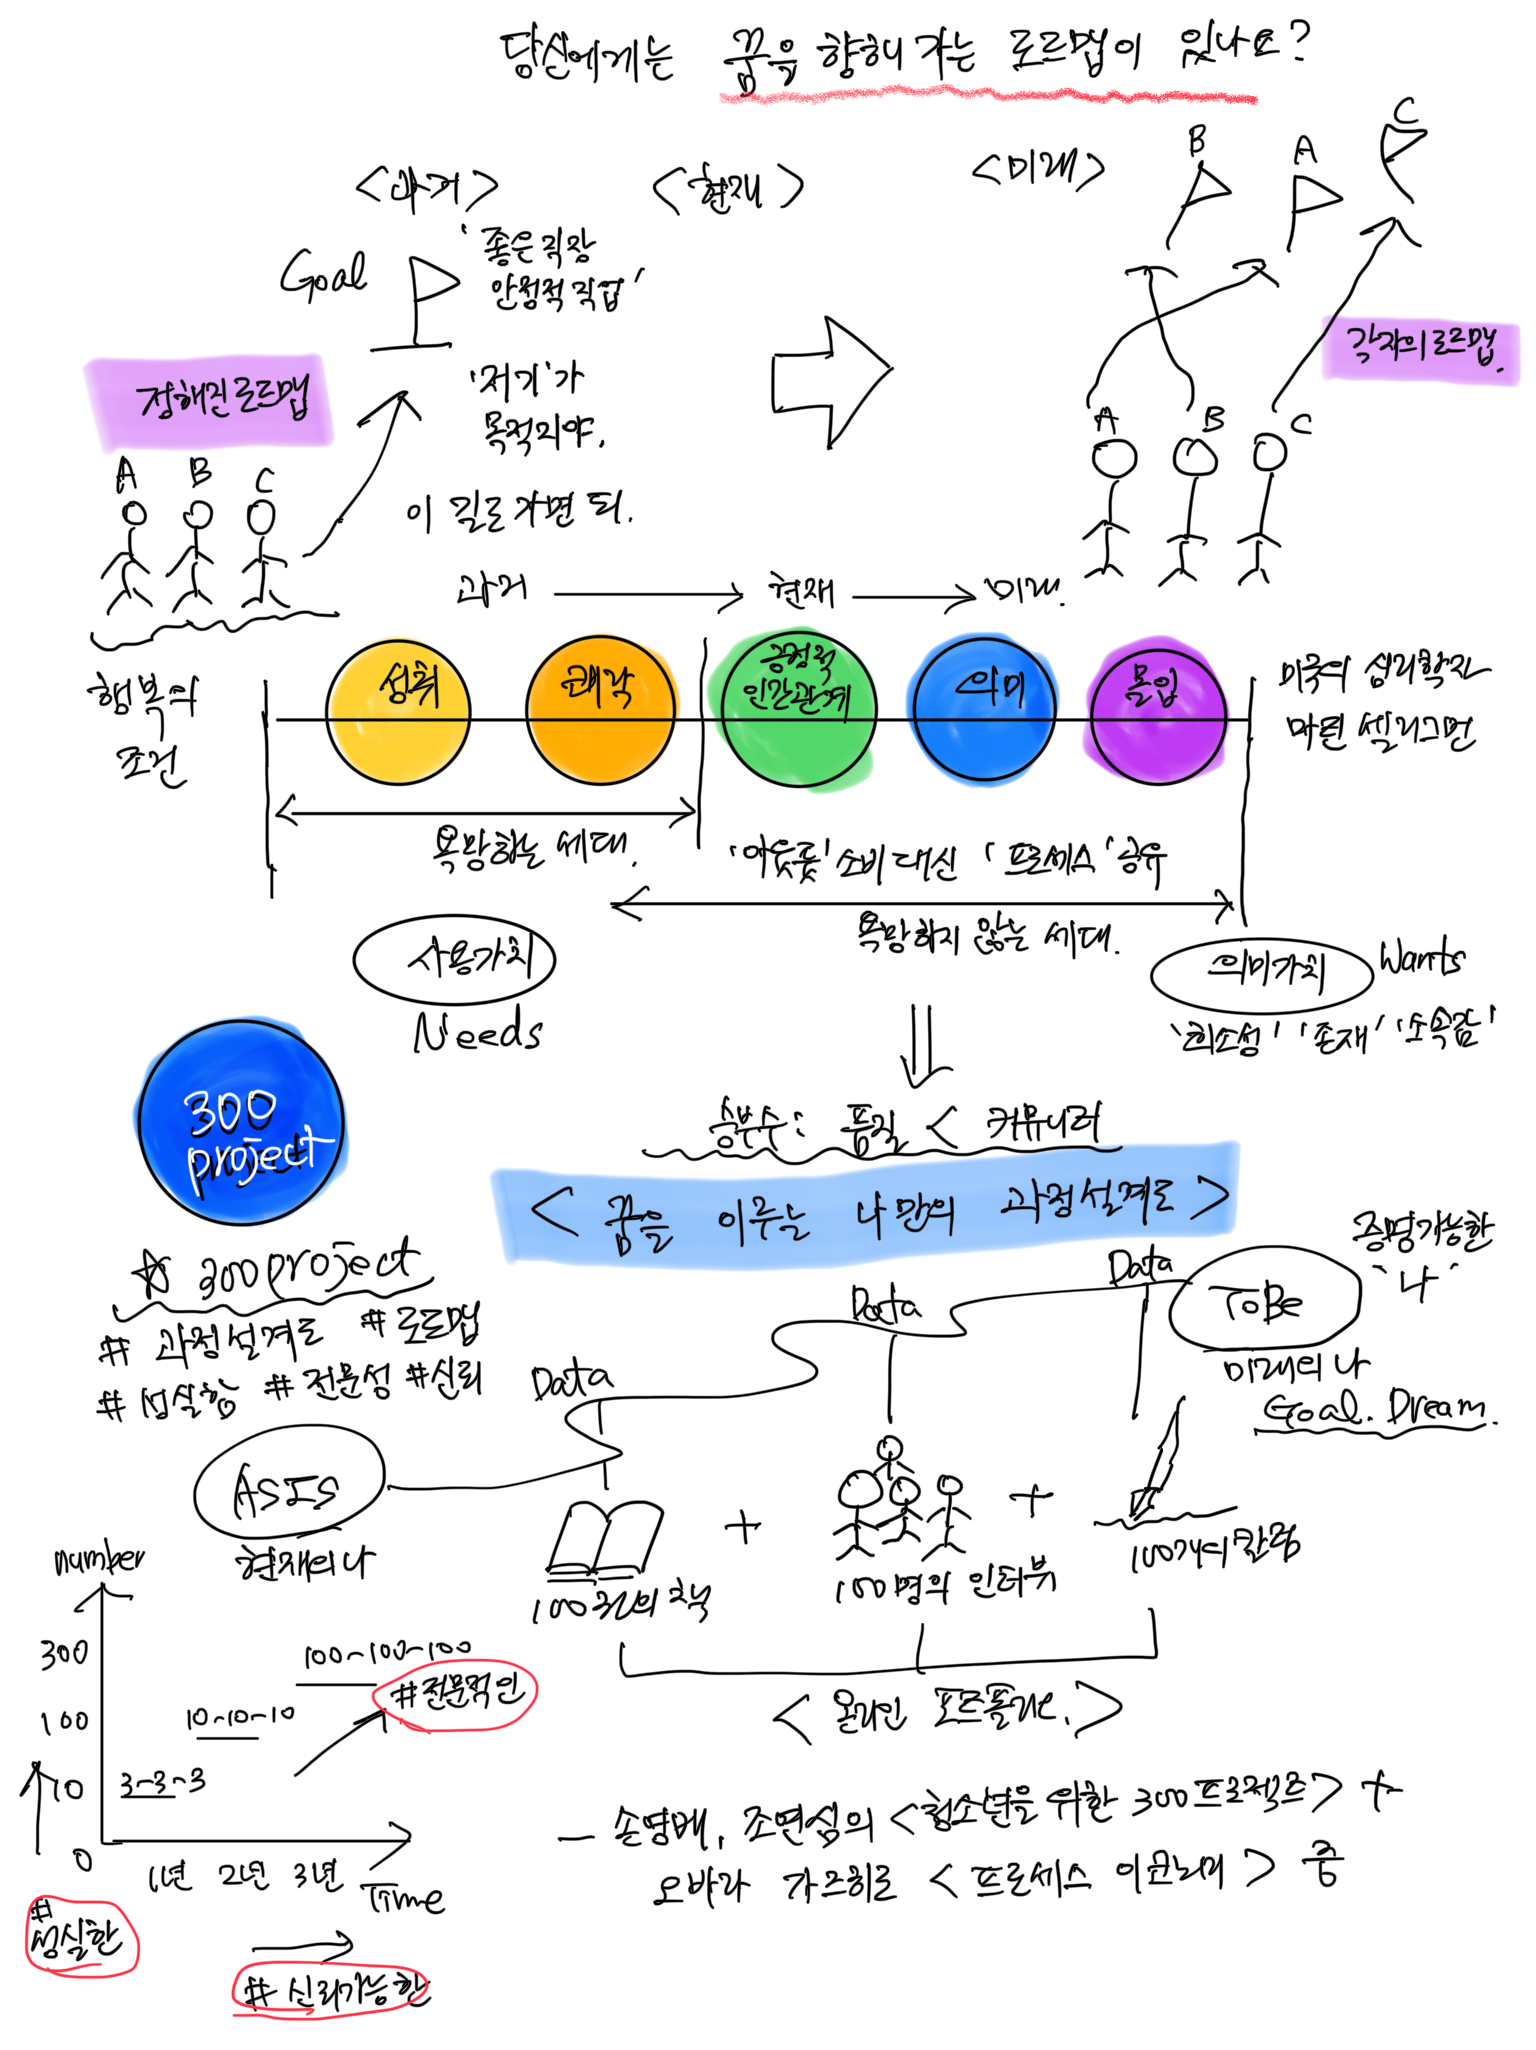 당신에게는 꿈을 향해 가는 로드맵이 있나요?
<과거>
<현재>
<미래>
B
A
C
Goal
'좋은 직장
안정적 직업'
정해진 로드맵
'저기'가
목적지야.
이 길로 가면 돼.
A B C
각자의 로드맵.
A B C
과거 → 현재 → 미래.
행복의
조건
성취
쾌락
긍정적
인간관계
의미
몰입
미국의 심리학자
마틴 셀리그먼
욕망하는 세대.
'아웃풋' 소비 대신 '프로세스' 공유
욕망하지 않는 세대.
사용가치
Needs
의미가치
Wants
'희소성' '존재' '소속감'
300
project
승부수: 품질 < 커뮤니티
<꿈을 이루는 나만의 과정설계도>
☆ 300project
# 과정설계도 # 로드맵
# 성실함 # 전문성 #신뢰
Data
Data
Data
ToBe
증명가능한
'나'
미래의 나
Goal. Dream.
ASIS
현재의 나
100권의 책
+
100명의 인터뷰
+
100개의 칼럼
<온라인 포트폴리오.>
number
300
100
10
0
100-100-100
10-10-10
3-3-3
#전문적인
1년 2년 3년
Time
#
성실한
# 신뢰가능한
- 손영배, 조연심의 <청소년을 위한 300프로젝트> +
오바라 가즈히로 <프로세스 이코노미> 중